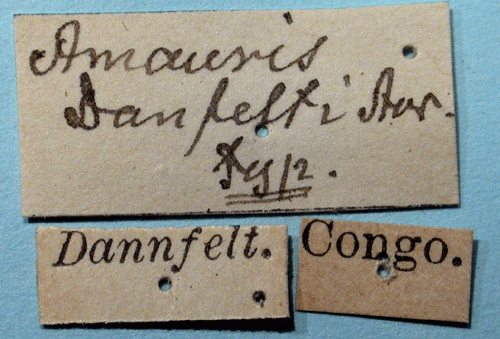 Amauris
Danfelti Aur.
Typ.
Dannfelt.
Congo.